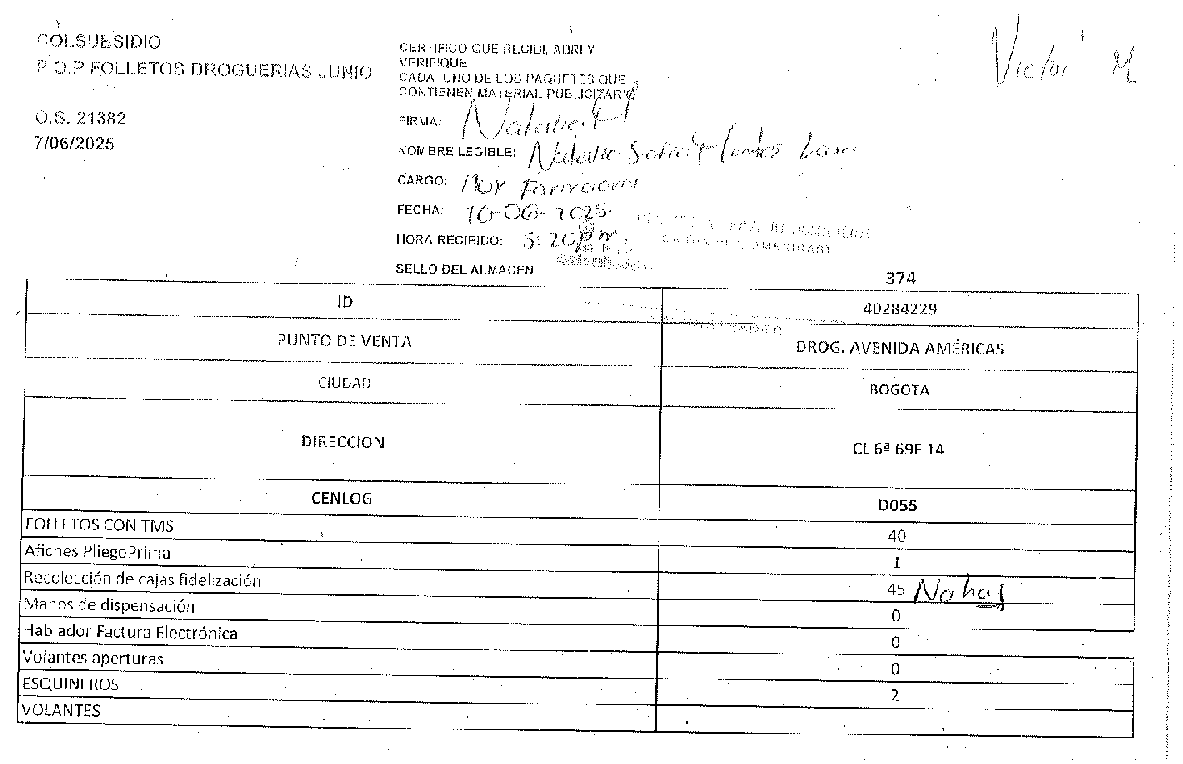 COLSUBSIDIO
P.O.P FOLLETOS DROGUERIAS JUNIO
O.S. 21382
7/06/2025
Victor M
CERTIFICO QUE RECIBI, ABRI Y
VERIFIQUE
CADA UNO DE LOS PAQUETES QUE
CONTIENEN MATERIAL PUBLICITARIO
FIRMA:
NOMBRE LEGIBLE: Natalia
CARGO:
FECHA: 10-06-2025
HORA RECIBIDO: 5:20 PM
SELLO DEL ALMACEN
374
ID 40284229
PUNTO DE VENTA DROG. AVENIDA AMÉRICAS
CIUDAD BOGOTA
DIRECCION CL 6ª 69F 14
CENLOG D055
FOLLETOS CON TMS 40
Afiches PliegoPrima 1
Recolección de cajas fidelización 45 No hay
Manos de dispensación 0
Hablador Factura Electrónica 0
Volantes aperturas 0
ESQUINEROS 2
VOLANTES